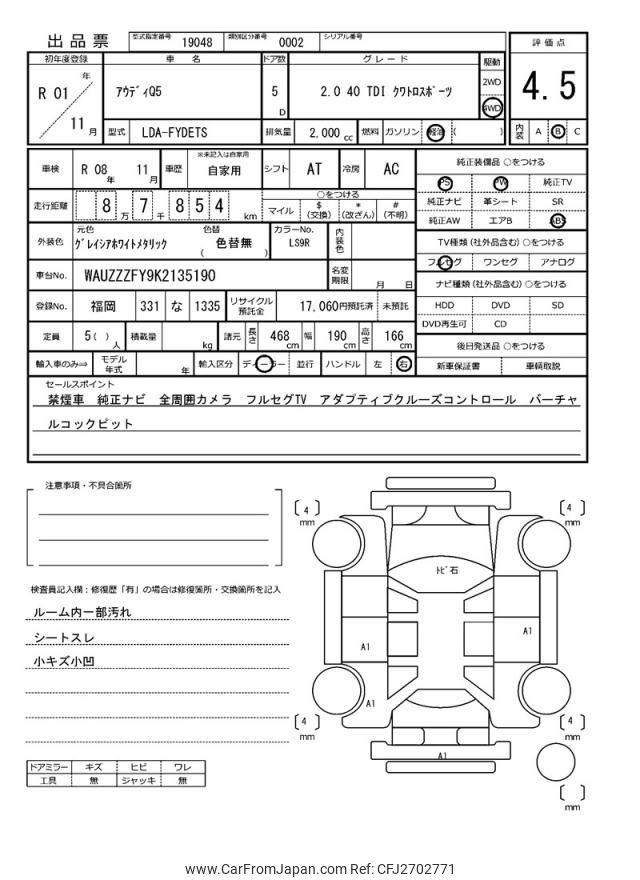 出品票 型式指定番号 19048 類別区分番号 0002 シリアル番号
評価点
4.5
内装 A B C
初年度登録 車名 ドア数 グレード 駆動
R 01 年 11 月
アウディQ5 5 D 2.0 40 TDI クワトロスポーツ 2WD 4WD
型式 LDA-FYDETS 排気量 2,000 cc 燃料 ガソリン 軽油 ( )
車検 R 08 年 11 月 車歴 ※未記入は自家用 自家用 シフト AT 冷房 AC
走行距離 8 万 7 千 8 5 4 km
○をつける
マイル $(交換) *(改ざん) #(不明)
外装色 元色 グレイシアホワイトメタリック 色替 ( 色替無 ) カラーNo. LS9R 内装色
車台No. WAUZZZFY9K2135190 名変期限 月 日
登録No. 福岡 331 な 1335 リサイクル預託金 17,060円預託済 未預託
定員 5( ) 人 積載量 kg 諸元 長さ 468 cm 幅 190 cm 高さ 166 cm
輸入車のみ⇒ モデル年式 年 輸入区分 ディーラー 並行 ハンドル 左 右
純正装備品 ○をつける
PS PW 純正TV
純正ナビ 革シート SR
純正AW エアB ABS
TV種類 (社外品含む) ○をつける
フルセグ ワンセグ アナログ
ナビ種類 (社外品含む) ○をつける
HDD DVD SD
DVD再生可 CD
後日発送品 ○をつける
新車保証書 車輌取説
セールスポイント
禁煙車 純正ナビ 全周囲カメラ フルセグTV アダプティブクルーズコントロール バーチャ
ルコックピット
注意事項・不具合箇所
検査員記入欄:修復歴「有」の場合は修復箇所・交換箇所を記入
ルーム内一部汚れ
シートスレ
小キズ小凹
ドアミラー キズ ヒビ ワレ
工具 無 ジャッキ 無
〔 4 〕 mm
〔 4 〕 mm
トビ石
A1
A1
A1
〔 4 〕 mm
〔 4 〕 mm
A1
〔 〕 mm
www.CarFromJapan.com Ref: CFJ2702771